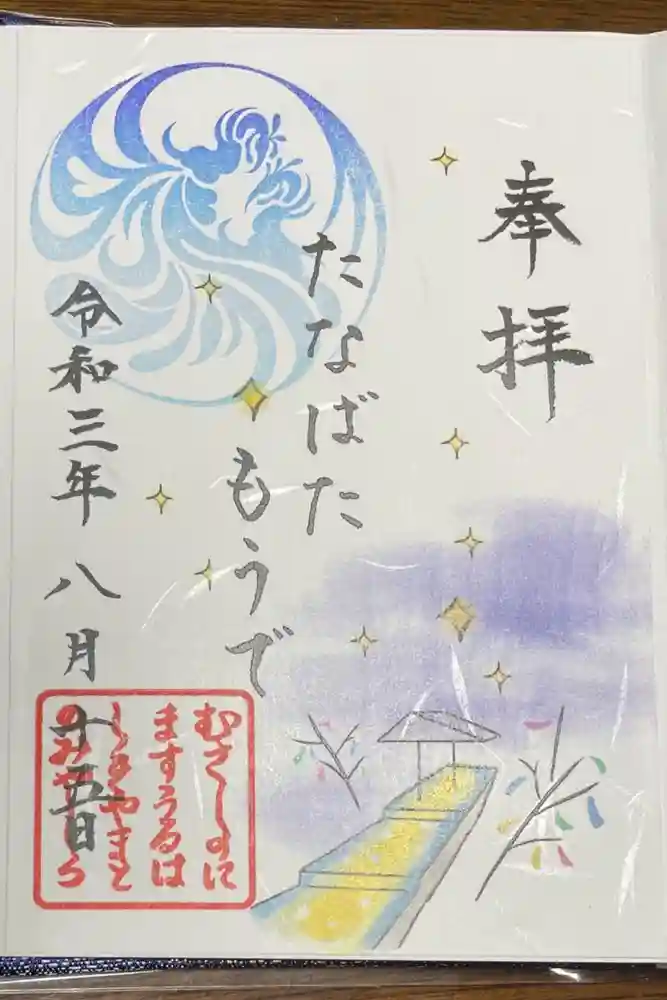 奉拝
たなばた
もうで
令和三年 八月十五日
むさしのに
ますうるは
しきやまと
のみやしろ